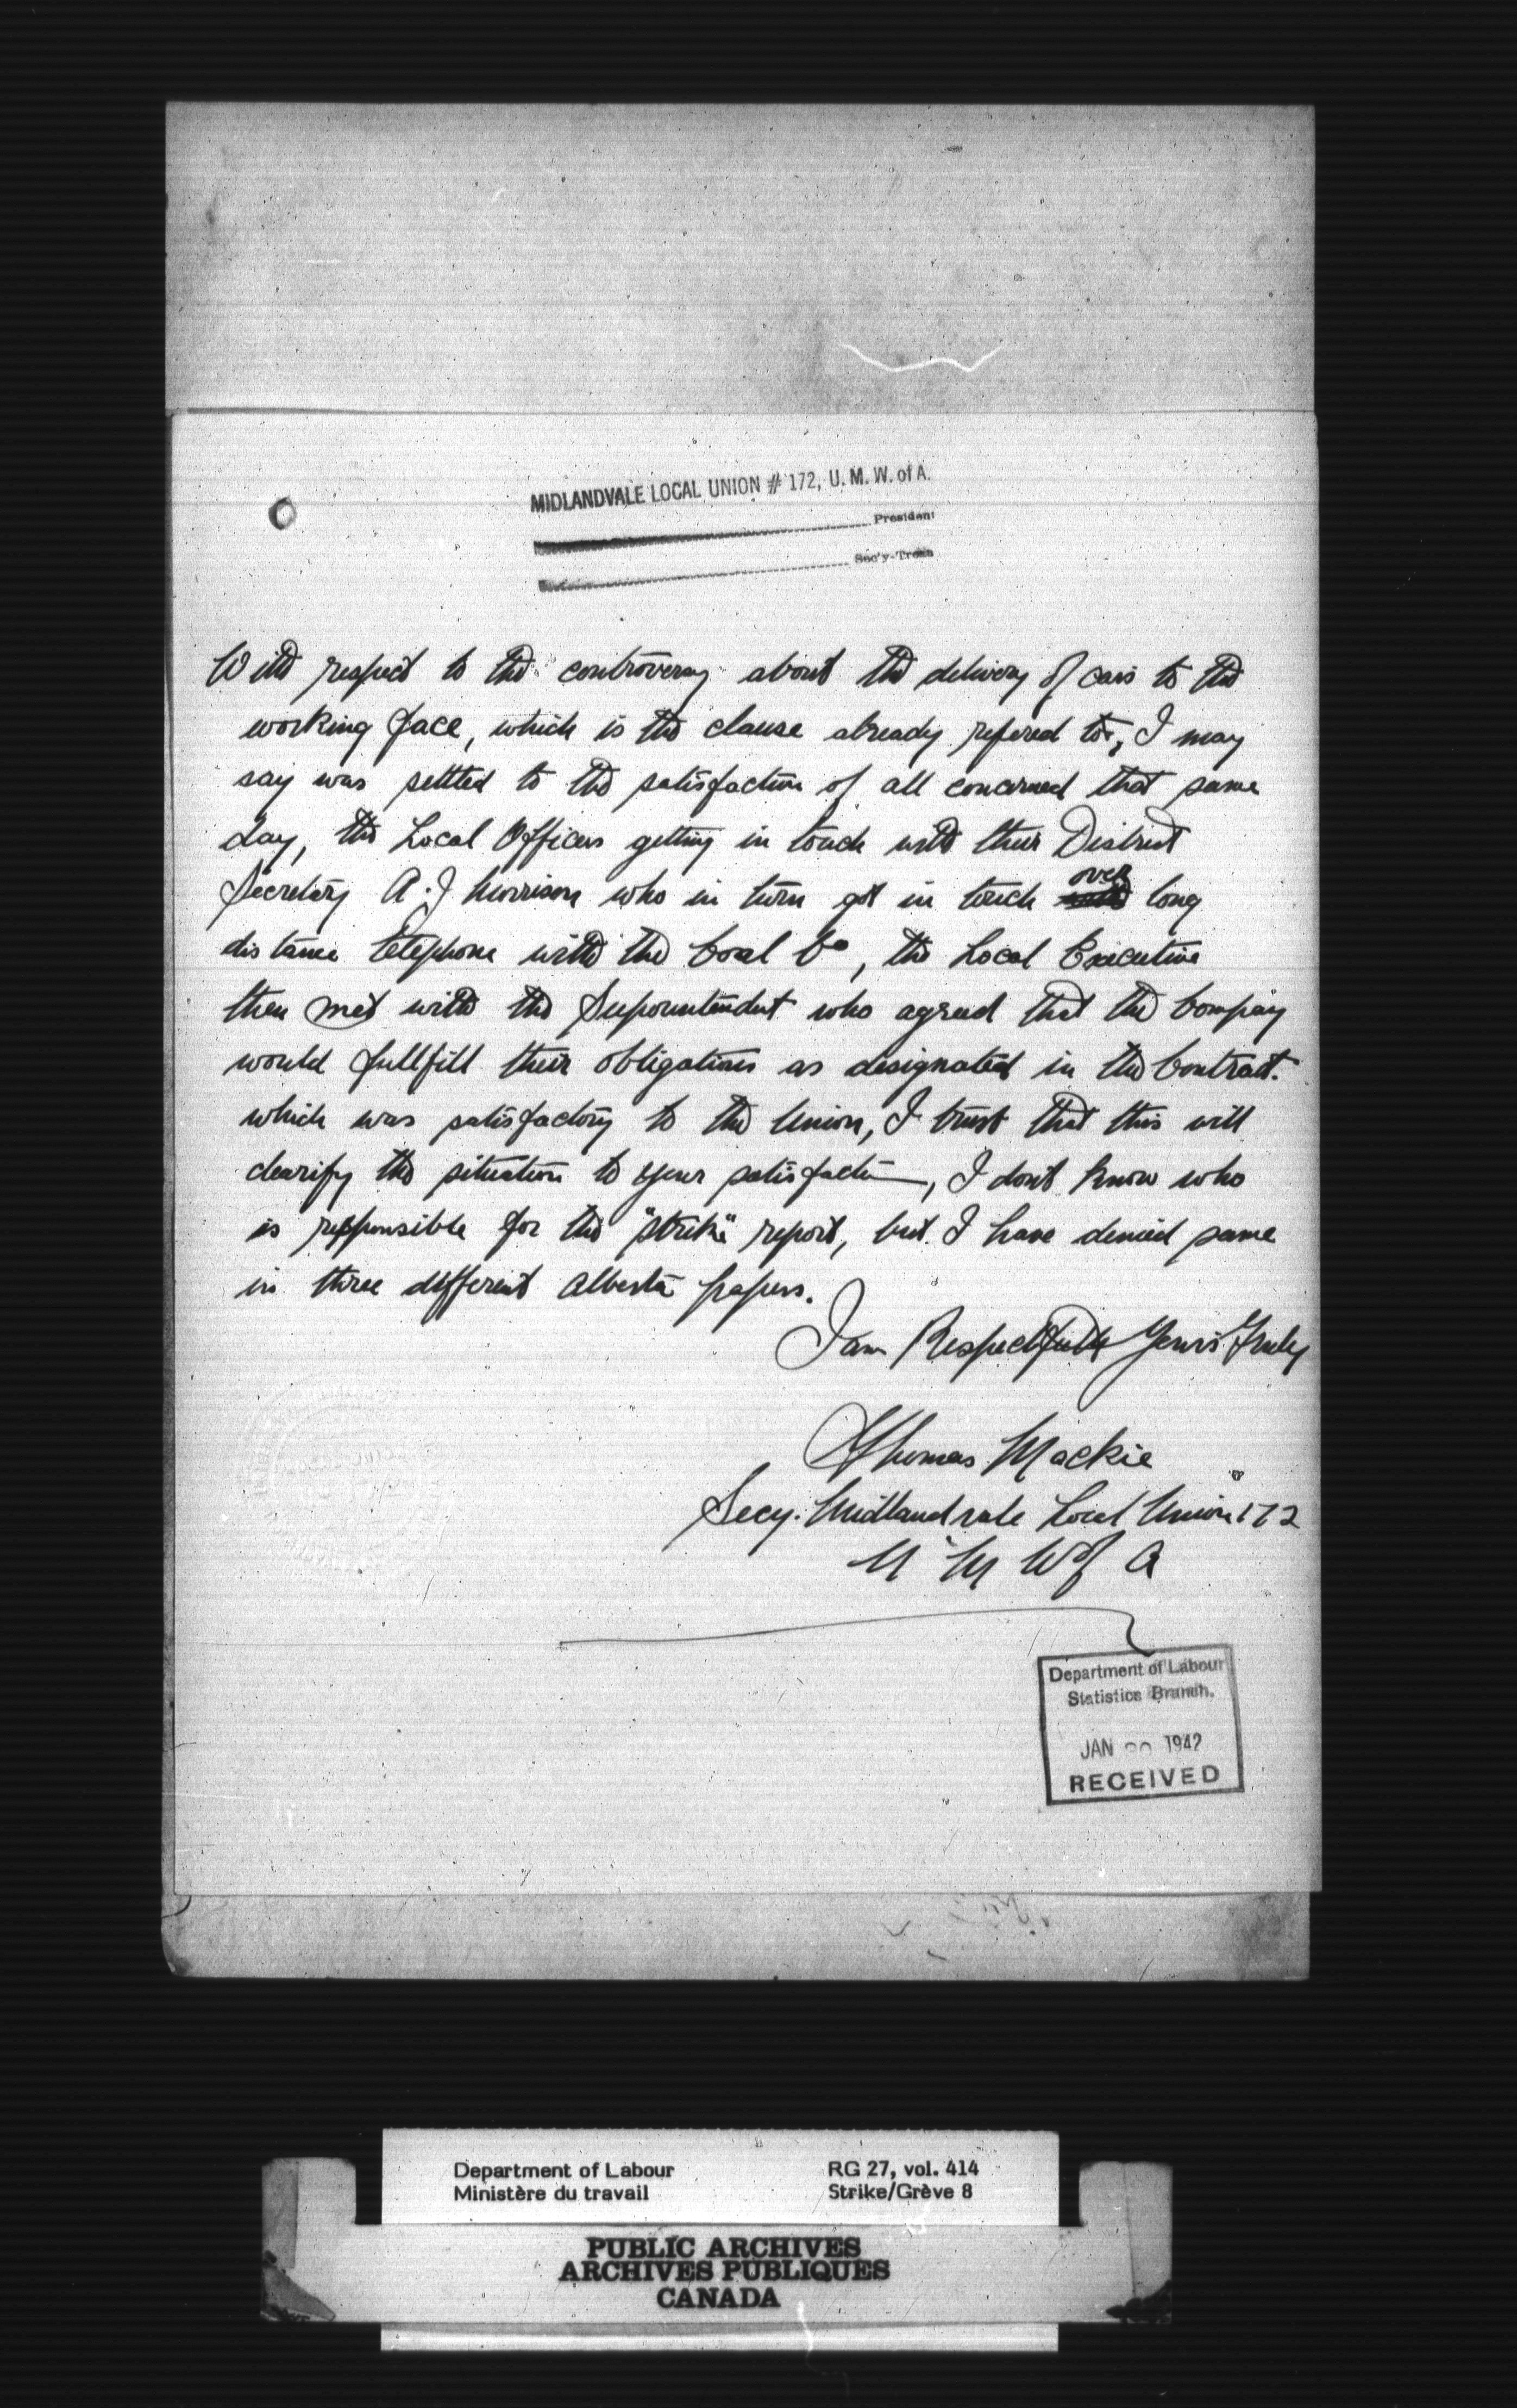 MIDLANDVALE LOCAL UNION # 172, U. M. W. of A.
President
Sec'y-Treas
With respect to the controversy about the delivery of cars to the
working face, which is the clause already refered to, I may
say was settled to the satisfaction of all concerned that same
day, the Local Officers getting in touch with their District
Secretary A. J Morrison who in turn got in touch over long
distance telephone with the Coal Co, the Local Executive
then met with the Superintendent who agreed that the Company
would fullfill their obligations as designated in the Contract.
which was satisfactory to the Union, I trust that this will
clearify the situation to your satisfaction, I dont know who
is responsible for the "strike" report, but I have denied same
in three different Alberta papers.
I am Respectfully Yours Truly
Thomas Mackie
Secy. Midlandvale Local Union 172
U M W of A
Department of Labour
Statistics Branch.
JAN 1942
RECEIVED
Department of Labour RG 27, vol. 414
Ministère du travail Strike/Grève 8
PUBLIC ARCHIVES
ARCHIVES PUBLIQUES
CANADA